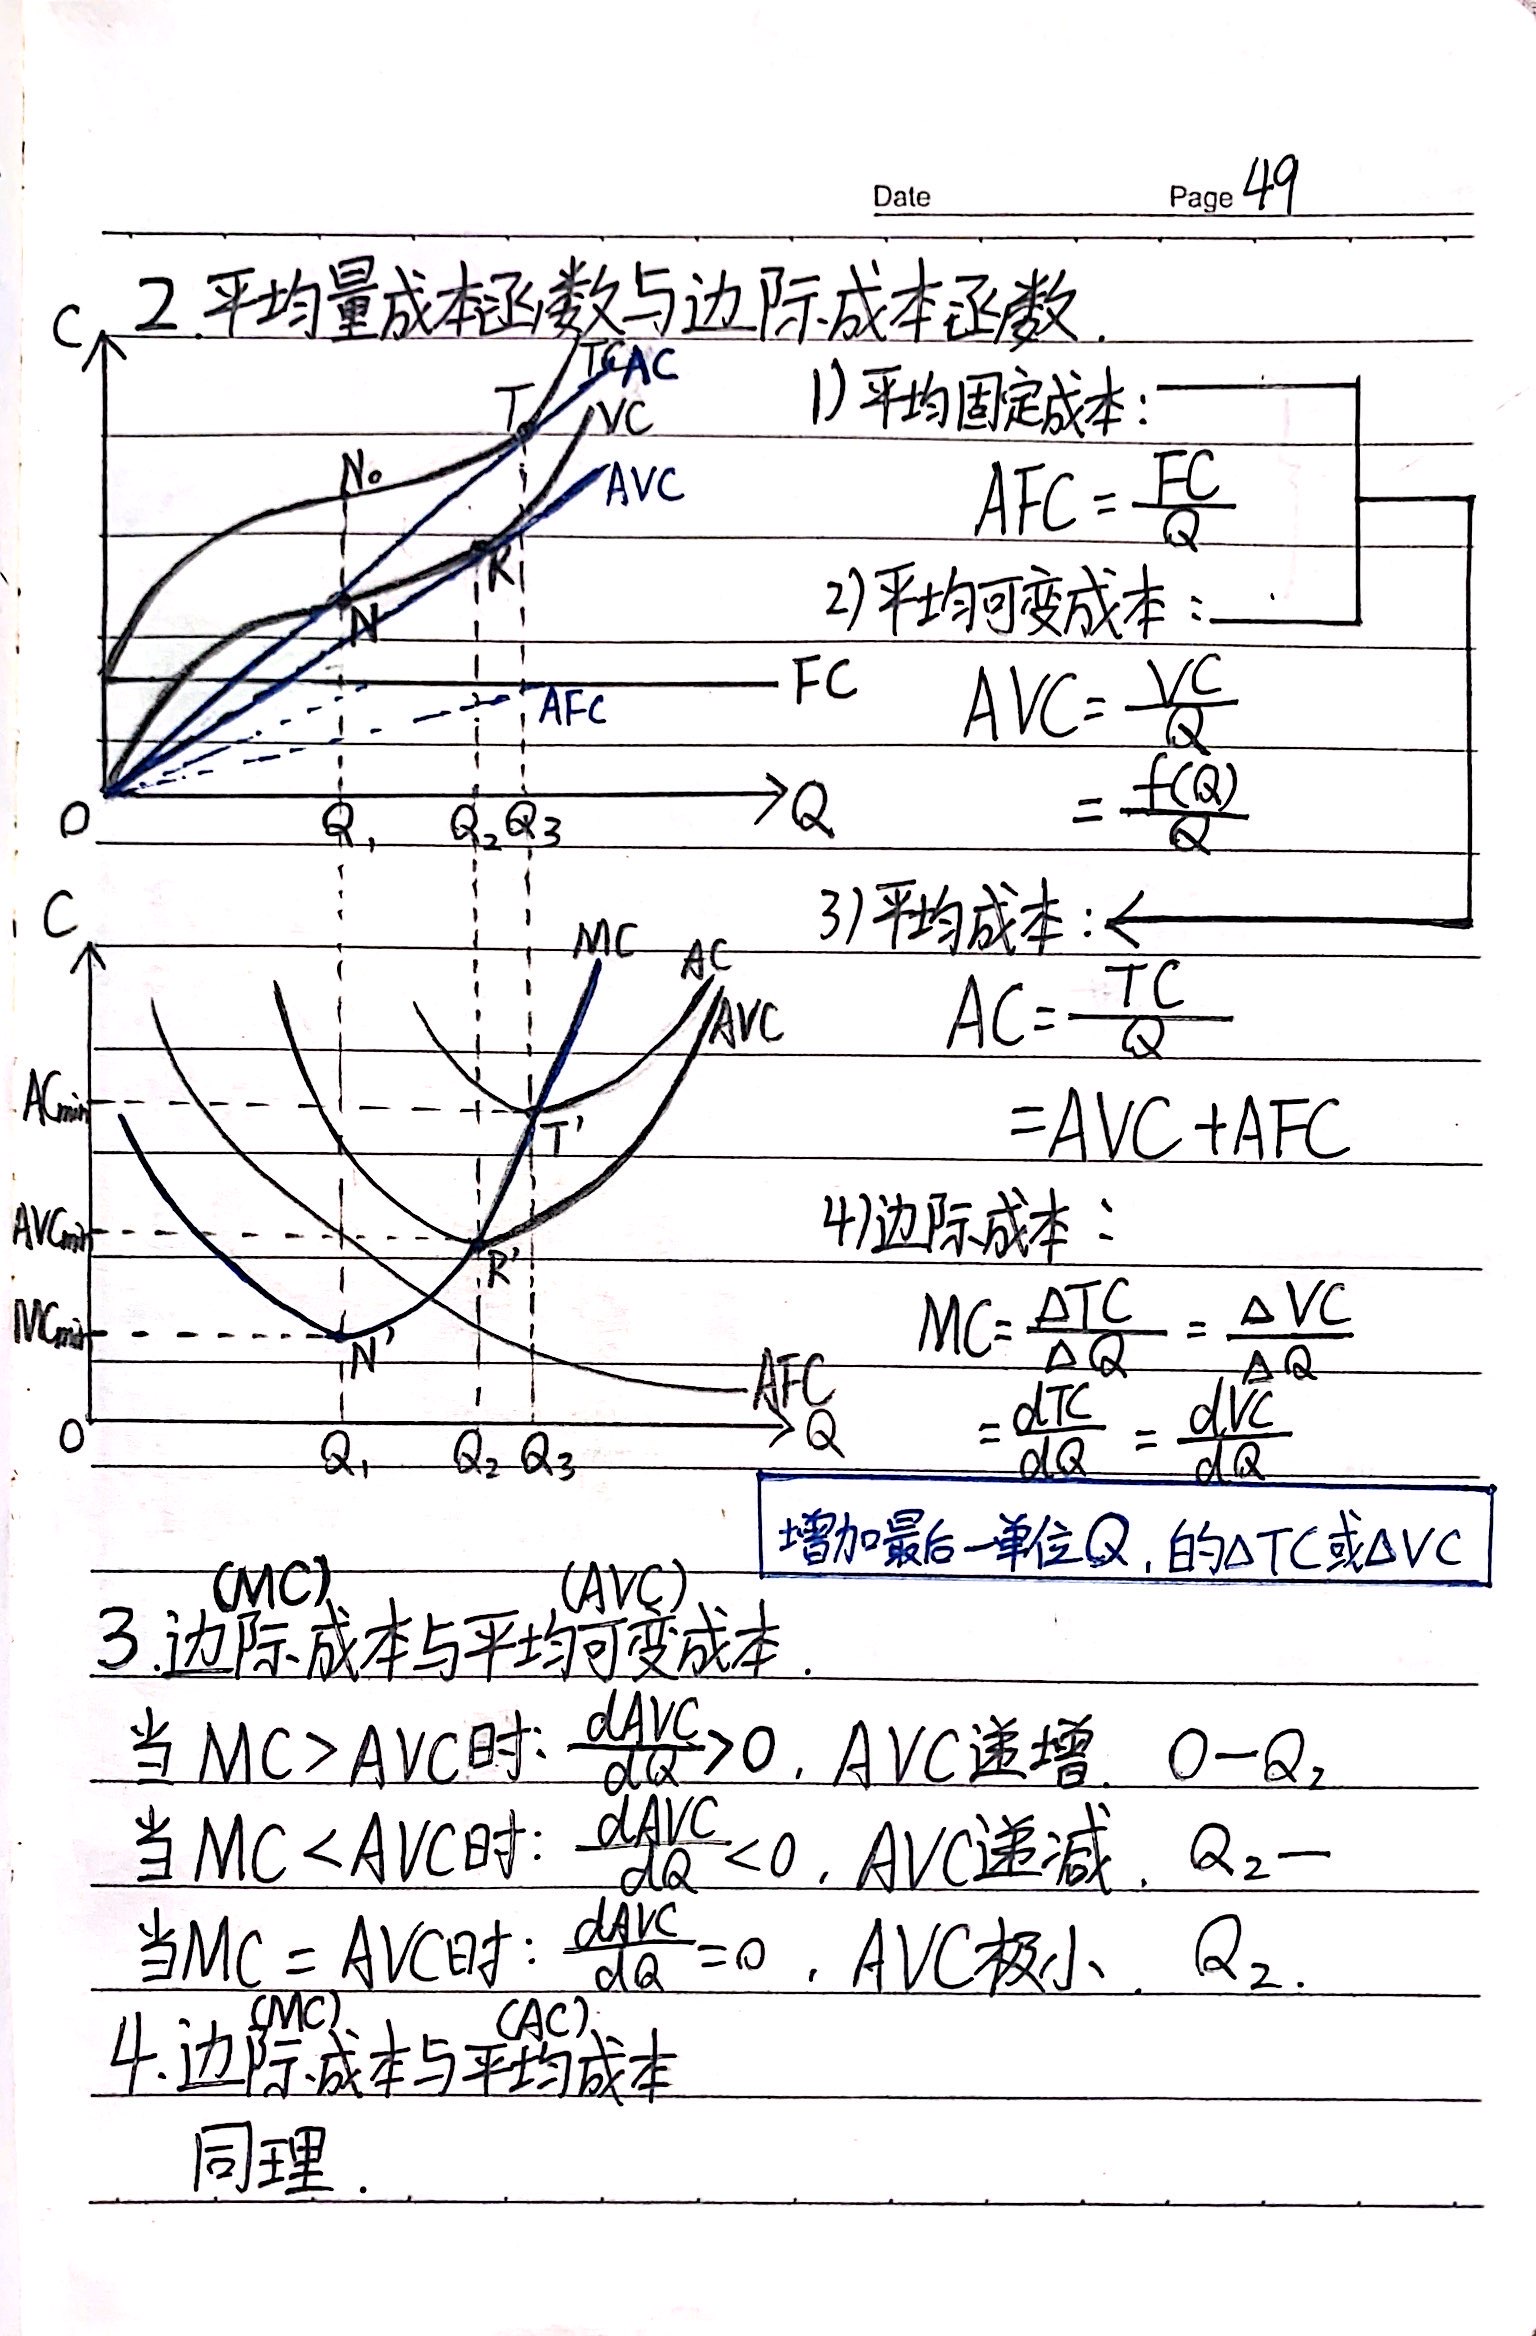 Date Page 49
2.平均量成本函数与边际成本函数.
C
TC AC
T
VC
N₀
AVC
R
N
FC
AFC
O Q₁ Q₂ Q₃ Q
1)平均固定成本:
AFC = FC/Q
2)平均可变成本:
AVC = VC/Q
= f(Q)/Q
3)平均成本:
AC = TC/Q
= AVC + AFC
4)边际成本:
MC = ΔTC/ΔQ = ΔVC/ΔQ
= dTC/dQ = dVC/dQ
增加最后一单位Q,的ΔTC或ΔVC
C
MC
AC
AVC
ACmin
T'
AVCmin
R'
MCmin
N'
AFC
O Q₁ Q₂ Q₃ Q
(MC) (AVC)
3.边际成本与平均可变成本.
当MC>AVC时: dAVC/dQ>0, AVC递增. O—Q₂
当MC<AVC时: dAVC/dQ<0, AVC递减. Q₂—
当MC=AVC时: dAVC/dQ=0, AVC极小. Q₂.
(MC) (AC)
4.边际成本与平均成本
同理.